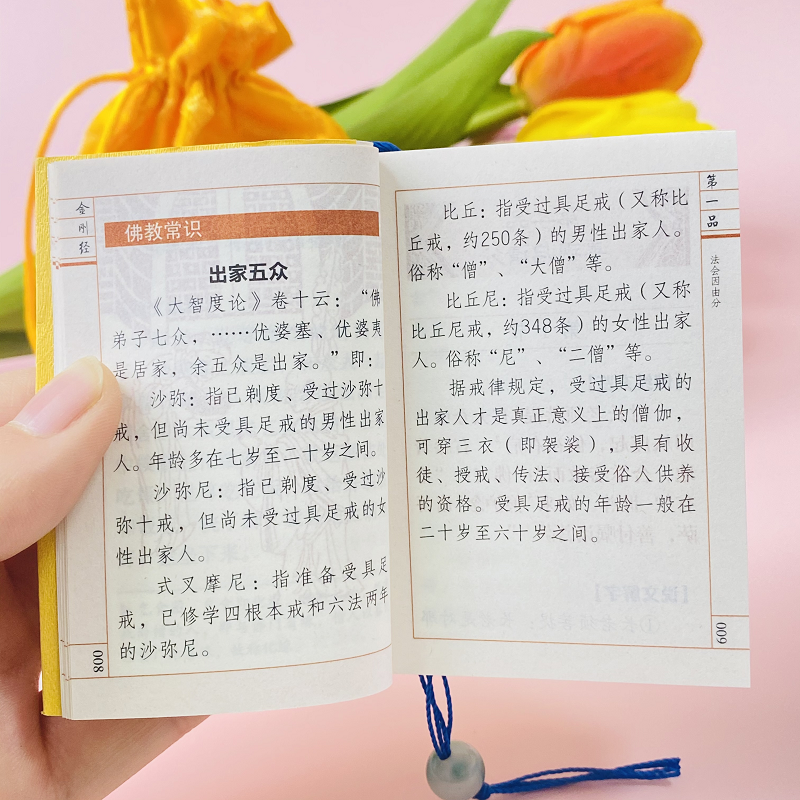 金刚经
佛教常识
出家五众
《大智度论》卷十云：“佛
弟子七众，……优婆塞、优婆夷
是居家，余五众是出家。”即：
沙弥：指已剃度、受过沙弥十
戒，但尚未受具足戒的男性出家
人。年龄多在七岁至二十岁之间。
沙弥尼：指已剃度、受过沙
弥十戒，但尚未受过具足戒的女
性出家人。
式叉摩尼：指准备受具足
戒，已修学四根本戒和六法两年
的沙弥尼。
008
第一品
法会因由分
比丘：指受过具足戒（又称比
丘戒，约250条）的男性出家人。
俗称“僧”、“大僧”等。
比丘尼：指受过具足戒（又称
比丘尼戒，约348条）的女性出家
人。俗称“尼”、“二僧”等。
据戒律规定，受过具足戒的
出家人才是真正意义上的僧伽，
可穿三衣（即袈裟），具有收
徒、授戒、传法、接受俗人供养
的资格。受具足戒的年龄一般在
二十岁至六十岁之间。
009